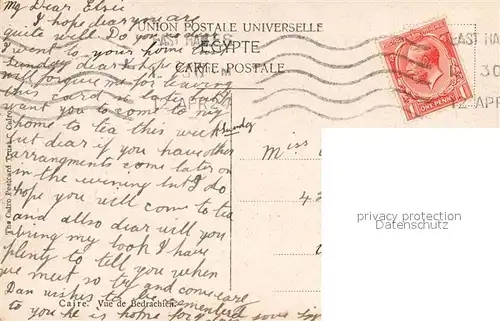 My Dear Elsie
I hope dear you are
quite well. Do you
I went to your home
Sunday dear I hope
will forgive me for leaving
this card so late but
want you to come to my
home to tea this week
Sunday
but dear if you have other
arrangments come later on
in the evening but I do
hope you will come to tea
and allso dear will you
bring my book I have
plenty to tell you when
we meet so try and come
Dan wishes to be remembered
to you he is home for
UNION POSTALE UNIVERSELLE
EGYPTE
CARTE POSTALE
EAST HAM
30
2 APR
ONE PENNY
Miss
42
privacy protection
Datenschutz
The Cairo Postcard Trust, Cairo
Caire. Vue de Bedrachien